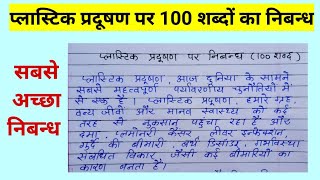 प्लास्टिक प्रदूषण पर 100 शब्दों का निबन्ध
सबसे
अच्छा
निबन्ध
प्लास्टिक प्रदूषण पर निबन्ध (100 शब्द)
प्लास्टिक प्रदूषण, आज दुनिया के सामने
सबसे महत्वपूर्ण पर्यावरणीय चुनौतियों में
से एक है। प्लास्टिक प्रदूषण, हमारे ग्रह,
वन्य जीवों और मानव स्वास्थ्य को कई
तरह से नुकसान पहुंचा रहा है और
कैंसर, लीवर इन्फेक्शन,
गुर्दे की बीमारी, गर्भावस्था
संबंधित विकार, जैसी कई बीमारियों का
कारण बनता है।